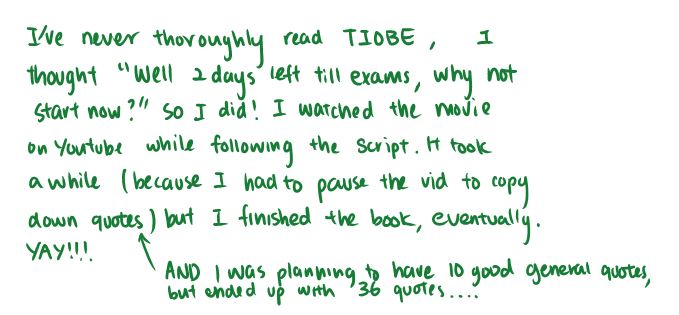 I've never thoroughly read TIOBE, I
thought "Well 2 days left till exams, why not
start now?" So I did! I watched the movie
on Youtube while following the script. It took
a while (because I had to pause the vid to copy
down quotes) but I finished the book, eventually.
YAY!!!
AND I was planning to have 10 good general quotes,
but ended up with 36 quotes....